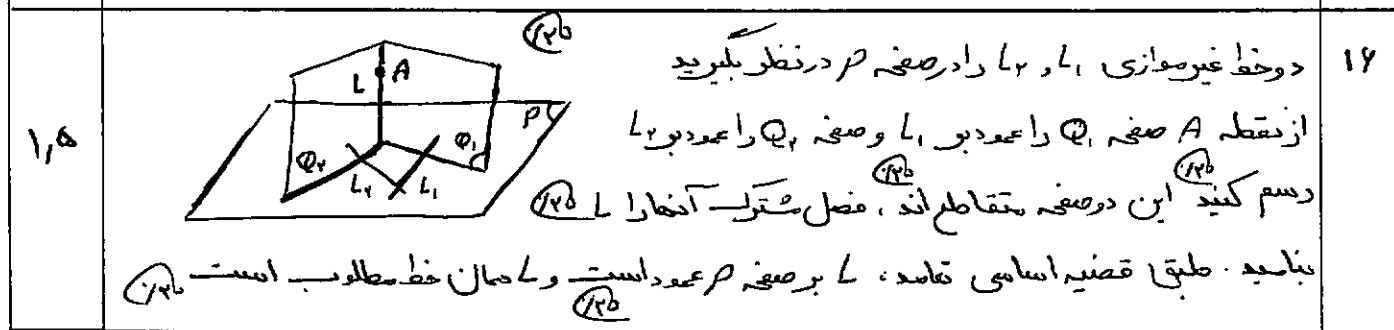 ۱۶
دو خط غیرموازی L₁ و L₂ را در صفحه P در نظر بگیرید ۰/۲۵
از نقطه A صفحه Q₁ را عمود بر L₁ و صفحه Q₂ را عمود بر L₂
رسم کنید ۰/۲۵ این دو صفحه متقاطع اند ۰/۲۵ ، فصل مشترک آنها را L ۰/۲۵
بنامید . طبق قضیه اساسی تعامد ، L بر صفحه P عمود است ۰/۲۵ و L همان خط مطلوب است ۰/۲۵
۱,۵
A
L
P
Q₁
Q₂
L₂
L₁